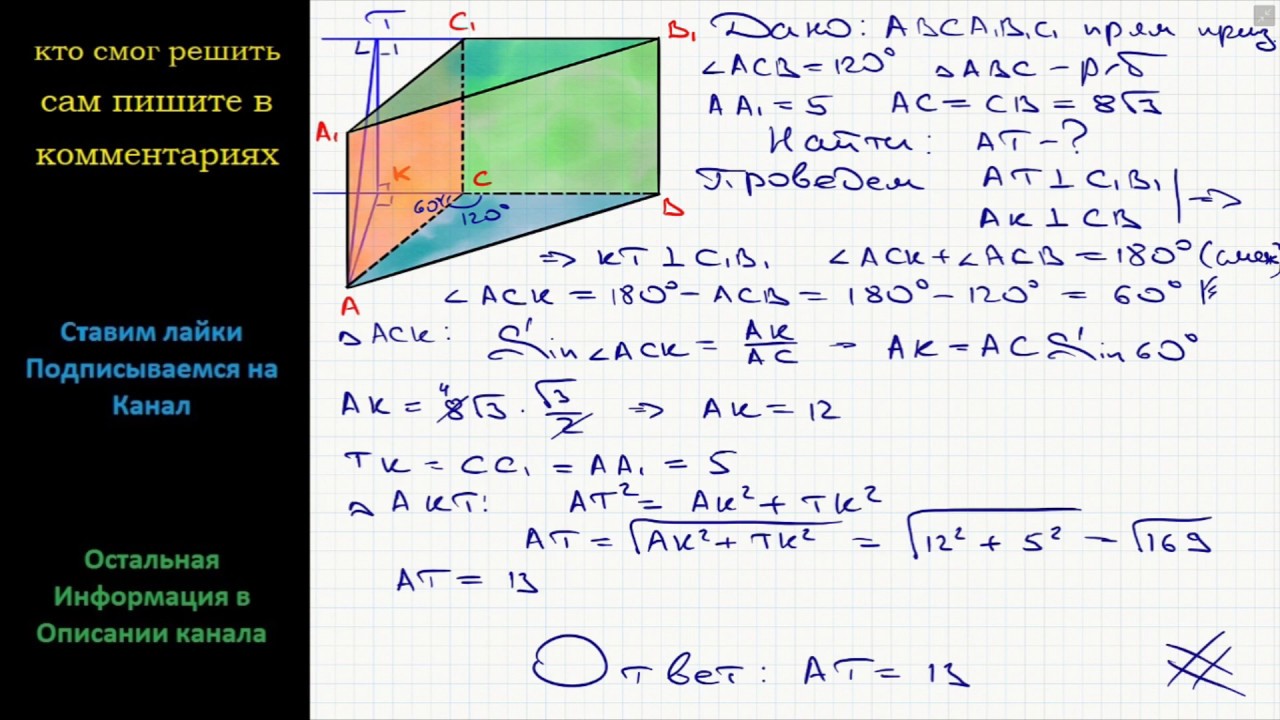 кто смог решить
сам пишите в
комментариях
Ставим лайки
Подписываемся на
Канал
Остальная
Информация в
Описании канала
T
C₁
B₁
A₁
K
C
60°
120°
B
A
Дано: ABCA₁B₁C₁ прям приз.
∠ACB = 120° △ABC – р/б
AA₁ = 5 AC = CB = 8√3
Найти: AT – ?
Проведем AT ⊥ C₁B₁
AK ⊥ CB | =>
=> KT ⊥ C₁B₁ ∠ACK + ∠ACB = 180° (смеж)
∠ACK = 180° – ACB = 180° – 120° = 60°
△ACK: Sin∠ACK = AK/AC – AK = AC Sin60°
AK = 8√3 · √3/2 => AK = 12
TK = CC₁ = AA₁ = 5
△AKT: AT² = AK² + TK²
AT = √(AK² + TK²) = √(12² + 5²) – √169
AT = 13
Ответ: AT = 13